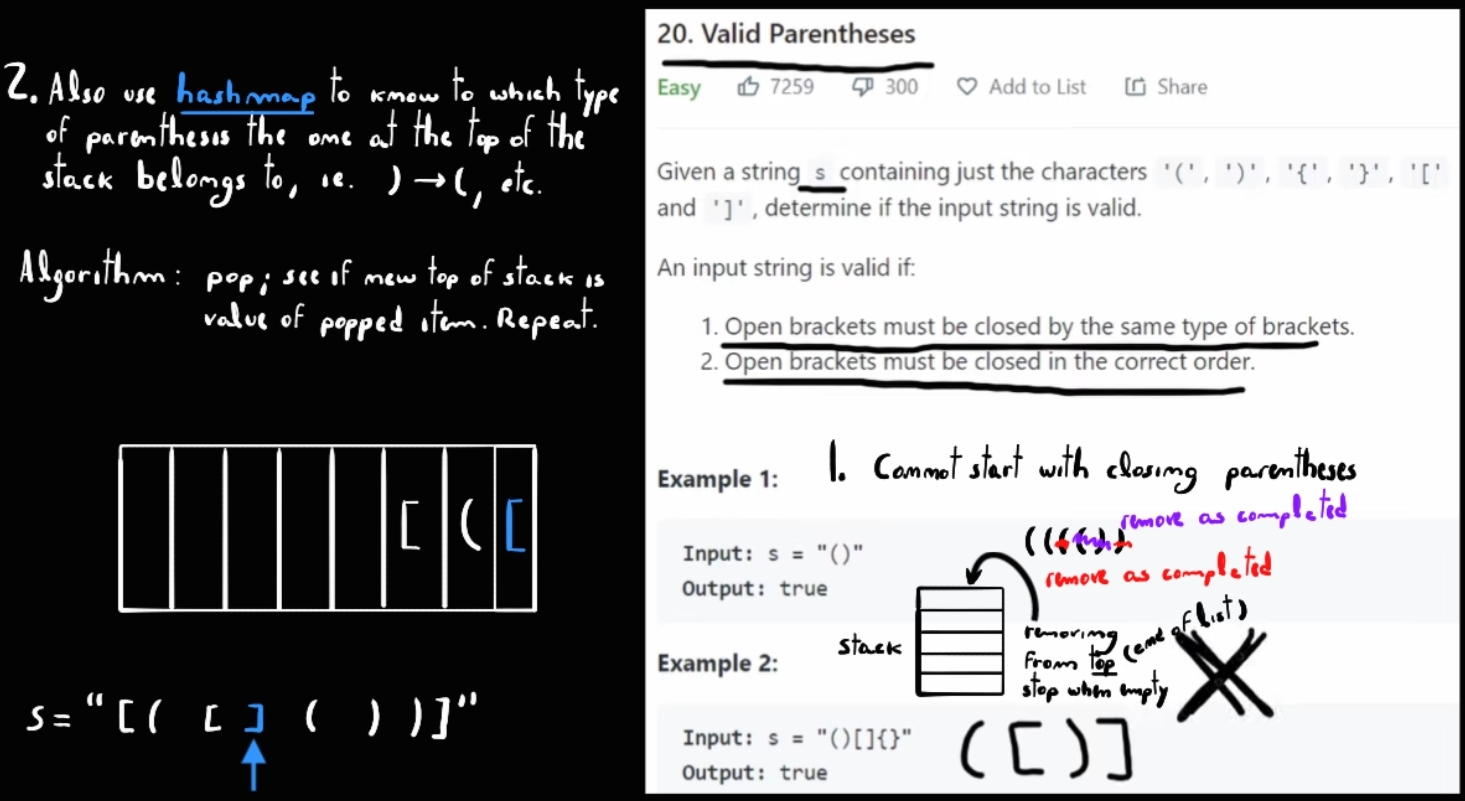 2. Also use hashmap to know to which type
of parenthesis the one at the top of the
stack belongs to, ie. ) → (, etc.
Algorithm: pop; see if new top of stack is
value of popped item. Repeat.
[ ( [
s = "[( [ ] ( ) )]"
20. Valid Parentheses
Easy 7259 300 Add to List Share
Given a string s containing just the characters '(', ')', '{', '}', '['
and ']', determine if the input string is valid.
An input string is valid if:
1. Open brackets must be closed by the same type of brackets.
2. Open brackets must be closed in the correct order.
1. Cannot start with closing parentheses
Example 1:
remove as completed
Input: s = "()"
Output: true
remove as completed
stack
removing
from top (end of list)
stop when empty
Example 2:
Input: s = "()[]{}"
Output: true
([)]